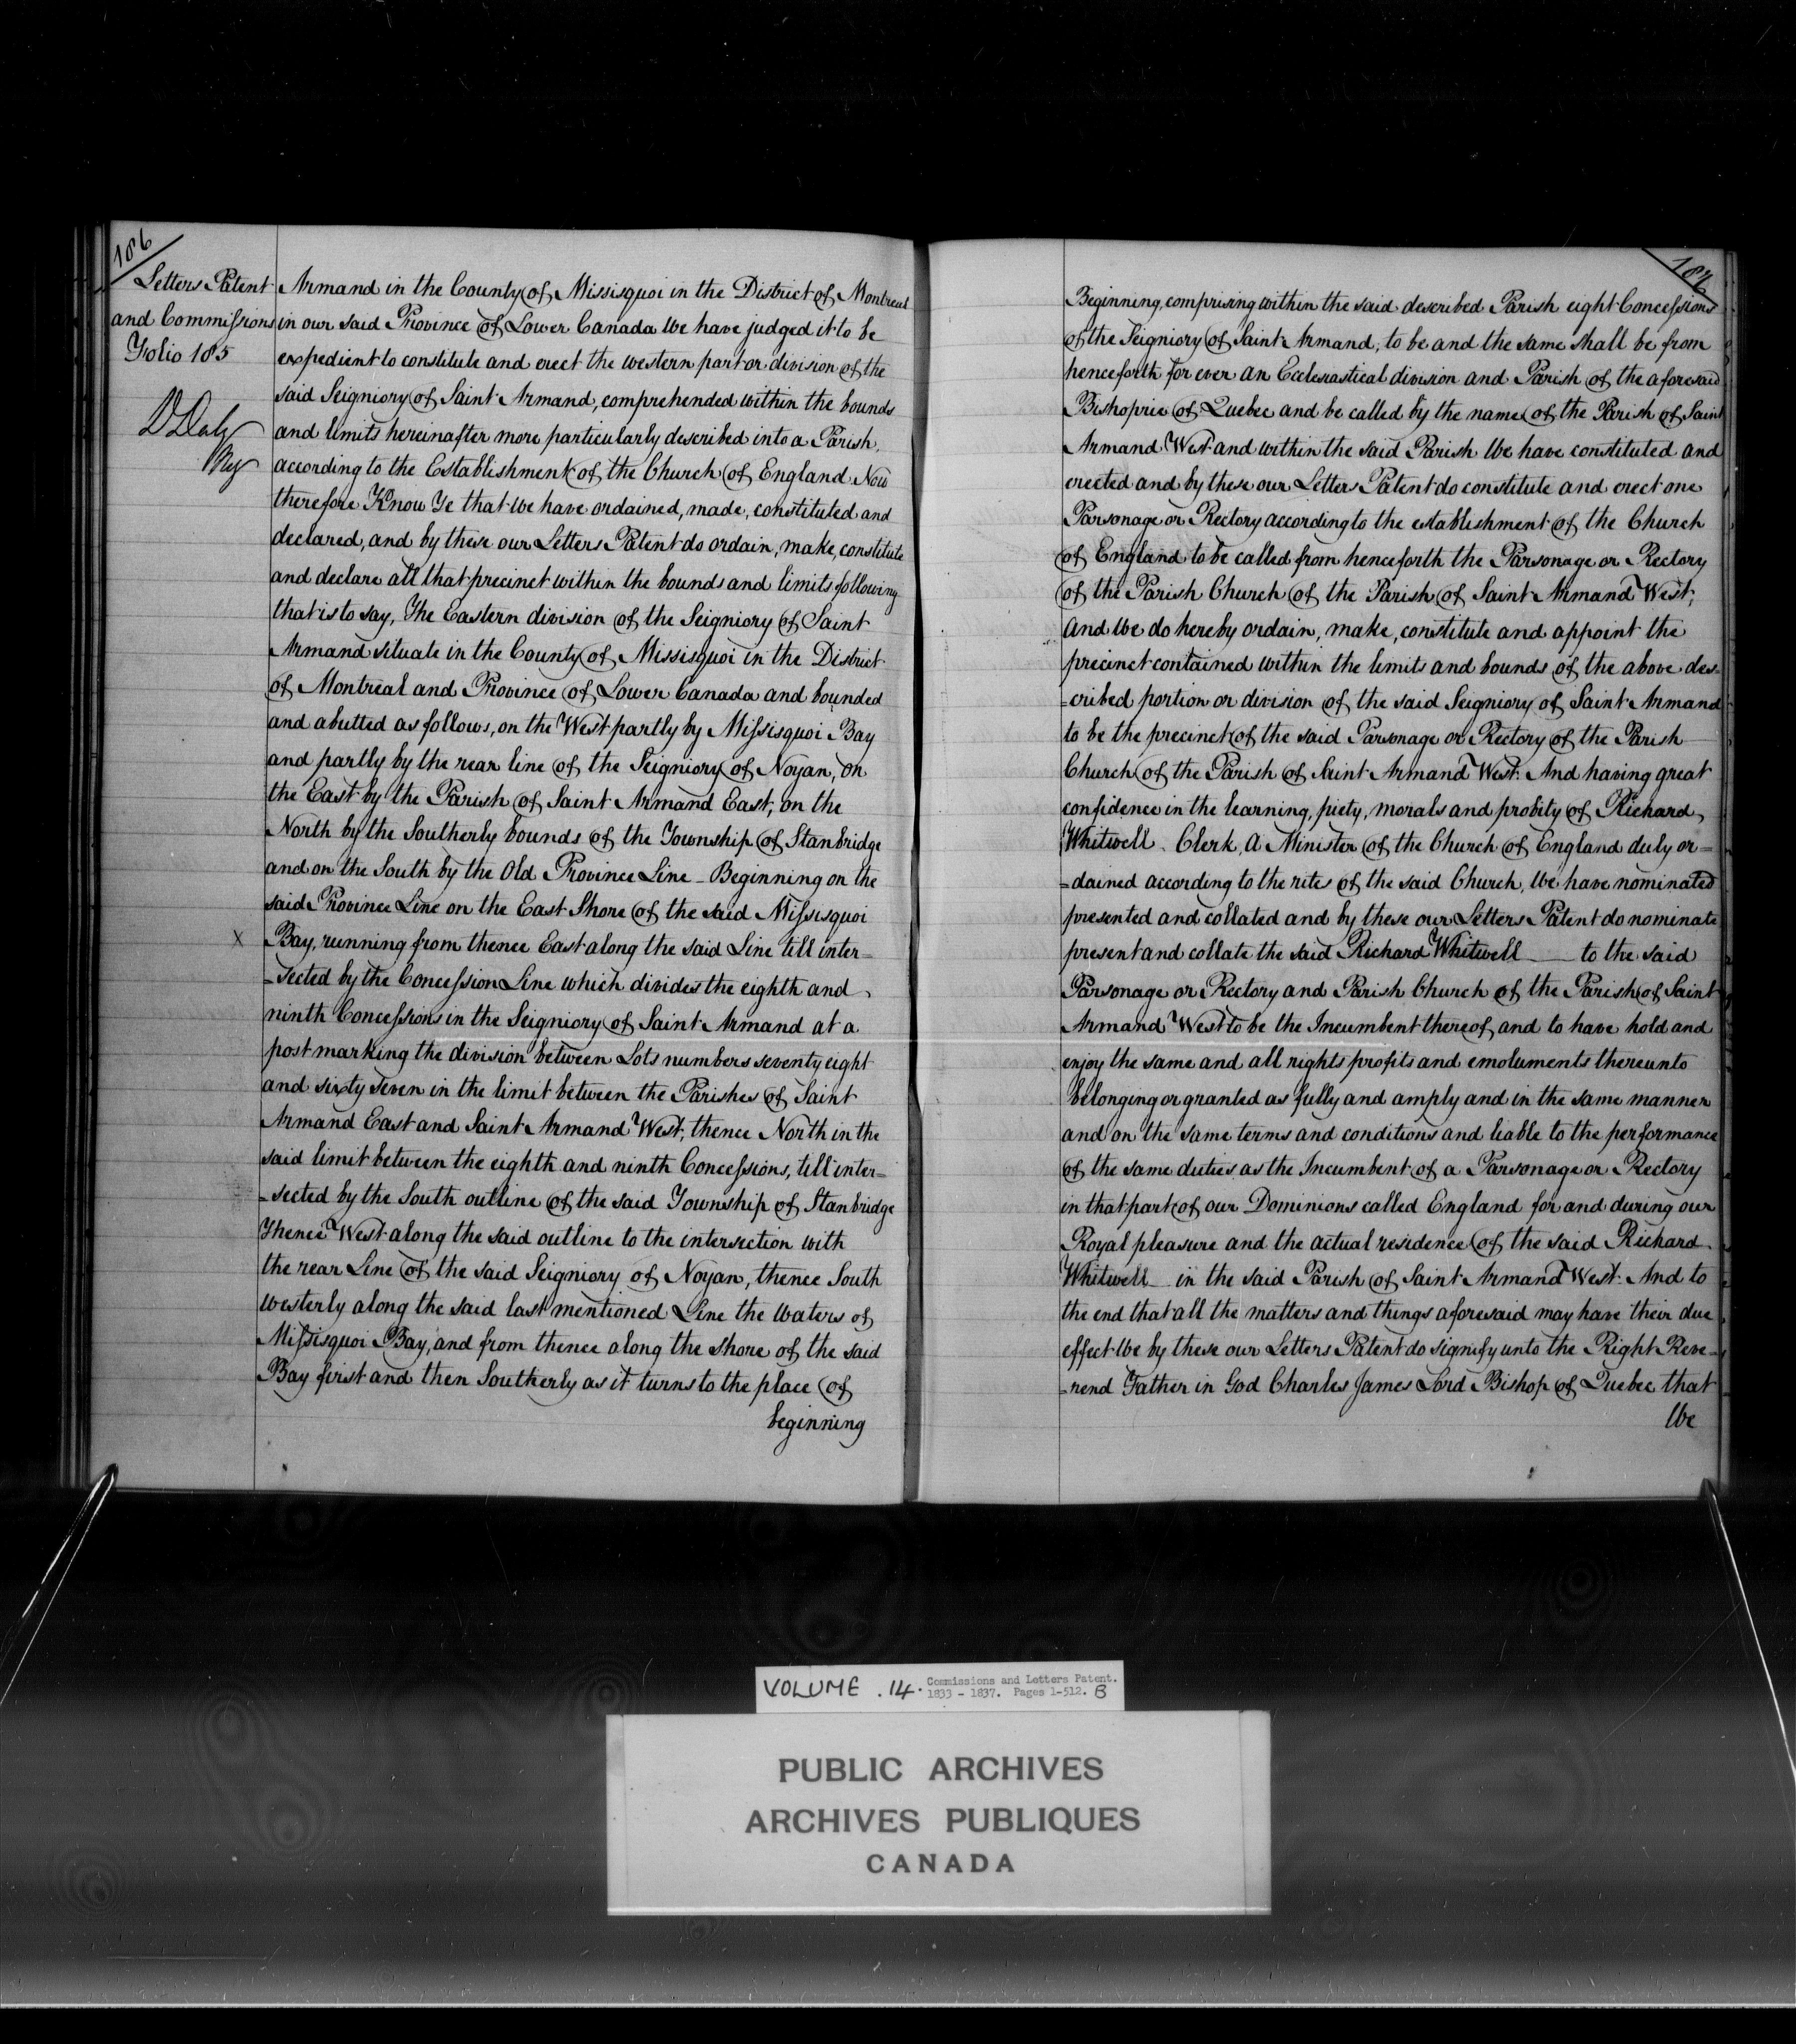 186
Letters Patent
and Commissions
Folio 185
D Daly
Reg
Armand in the County of Missisquoi in the District of Montreal
in our said Province of Lower Canada We have judged it to be
expedient to constitute and erect the western part or division of the
said Seigniory of Saint Armand, comprehended within the bounds
and limits hereinafter more particularly described into a Parish,
according to the Establishment of the Church of England Now
therefore Know Ye that We have ordained, made, constituted and
declared, and by these our Letters Patent do ordain, make, constitute
and declare all that precinct within the bounds and limits following
that is to say, The Eastern division of the Seigniory of Saint
Armand situate in the County of Missisquoi in the District
of Montreal and Province of Lower Canada and bounded
and abutted as follows, on the West partly by Missisquoi Bay
and partly by the rear line of the Seigniory of Noyan, on
the East by the Parish of Saint Armand East, on the
North by the Southerly bounds of the Township of Stanbridge
and on the South by the Old Province Line _ Beginning on the
said Province Line on the East Shore of the said Missisquoi
x Bay, running from thence East along the said Line till inter=
=sected by the Concession Line which divides the eighth and
ninth Concessions in the Seigniory of Saint Armand at a
post marking the division between Lots numbers seventy eight
and sixty seven in the limit between the Parishes of Saint
Armand East and Saint Armand West, thence North in the
said limit between the eighth and ninth Concessions, till inter=
=sected by the South outline of the said Township of Stanbridge
Thence West along the said outline to the intersection with
the rear Line of the said Seigniory of Noyan, thence South
westerly along the said last mentioned Line the waters of
Missisquoi Bay, and from thence along the shore of the said
Bay first and then Southerly as it turns to the place of
beginning
187
Beginning, comprising within the said described Parish eight Concessions
of the Seigniory of Saint Armand, to be and the same shall be from
henceforth for ever an Ecclesiastical division and Parish of the aforesaid
Bishopric of Quebec and be called by the name of the Parish of Saint
Armand West and within the said Parish We have constituted and
erected and by these our Letters Patent do constitute and erect one
Parsonage or Rectory according to the establishment of the Church
of England to be called from henceforth the Parsonage or Rectory
of the Parish Church of the Parish of Saint Armand West;
And We do hereby ordain, make, constitute and appoint the
precinct contained within the limits and bounds of the above des-
=cribed portion or division of the said Seigniory of Saint Armand
to be the precinct of the said Parsonage or Rectory of the Parish
Church of the Parish of Saint Armand West. And having great
confidence in the learning, piety, morals and probity of Richard
Whitwell. Clerk, A Minister of the Church of England duly or=
=dained according to the rites of the said Church, We have nominated
presented and collated and by these our Letters Patent do nominate
present and collate the said Richard Whitwell ___ to the said
Parsonage or Rectory and Parish Church of the Parish of Saint
Armand West to be the Incumbent thereof, and to have hold and
enjoy the same and all rights profits and emoluments thereunto
belonging or granted as fully and amply and in the same manner
and on the same terms and conditions and liable to the performance
of the same duties as the Incumbent of a Parsonage or Rectory
in that part of our Dominions called England for and during our
Royal pleasure and the actual residence of the said Richard
Whitwell _ in the said Parish of Saint Armand West. And to
the end that all the matters and things aforesaid may have their due
effect We by these our Letters Patent do signify unto the Right Reve=
=rend Father in God Charles James Lord Bishop of Quebec that
We
VOLUME . 14. Commissions and Letters Patent.
1833 - 1837. Pages 1-512. B
PUBLIC ARCHIVES
ARCHIVES PUBLIQUES
CANADA